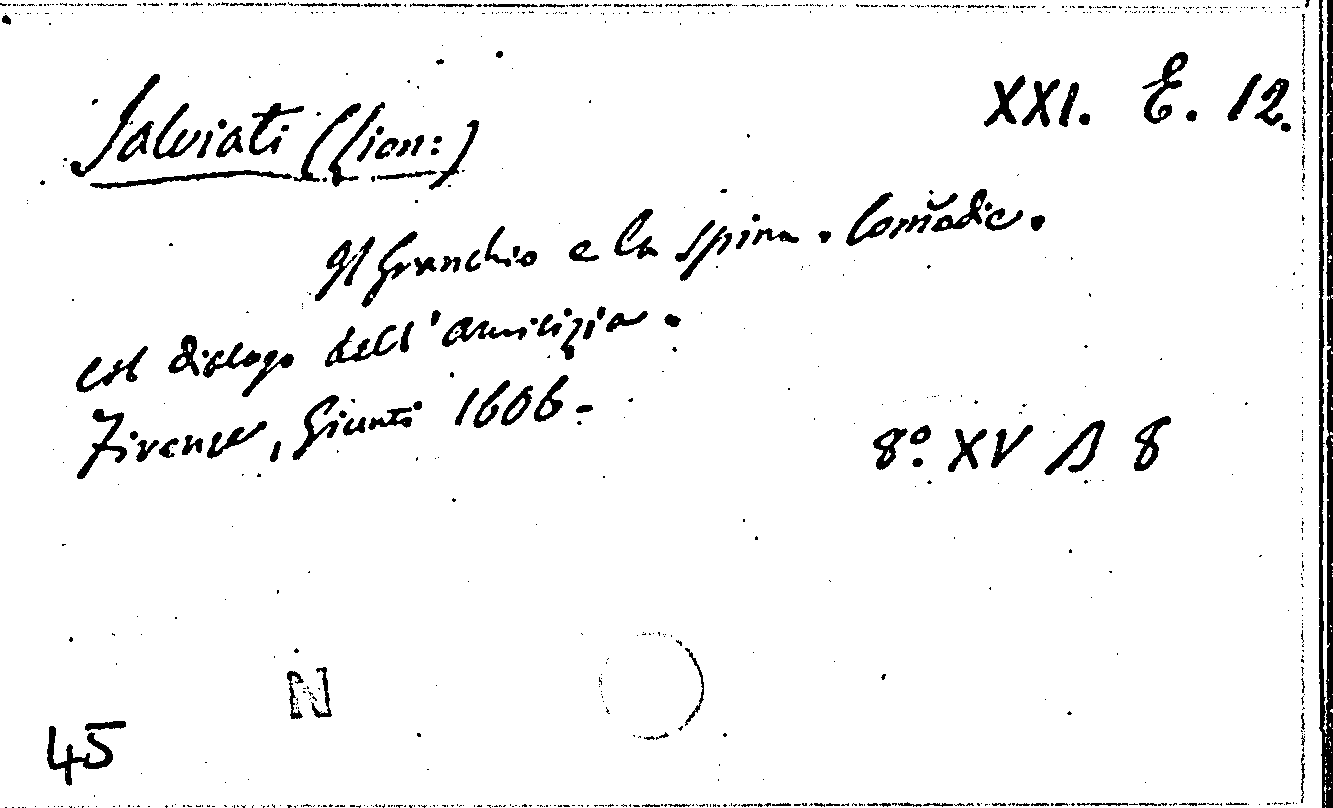 Salviati (Lion:)
XXI. E. 12.
Il Granchio e la Spina. Com̃edie.
col dialogo dell'amicizia.
Firenze, Giunti 1606.
8° XV B 8
N
45